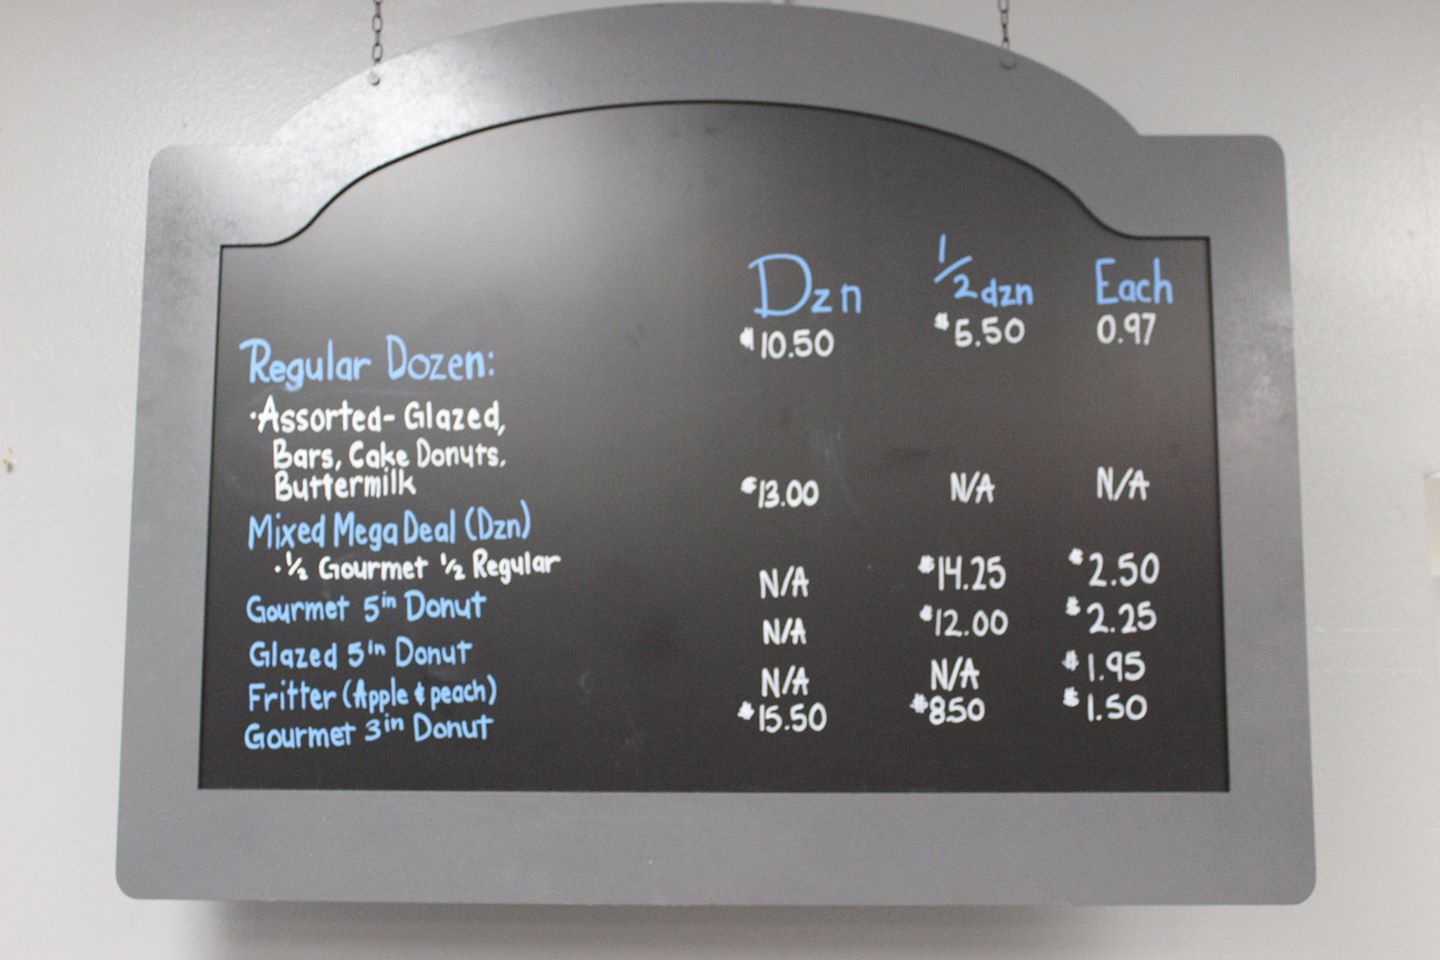 Dzn 1/2 dzn Each
Regular Dozen: $10.50 $5.50 0.97
·Assorted- Glazed,
Bars, Cake Donuts,
Buttermilk
Mixed Mega Deal (Dzn) $13.00 N/A N/A
·½ Gourmet ½ Regular
Gourmet 5in Donut N/A $14.25 $2.50
Glazed 5in Donut N/A $12.00 $2.25
Fritter (Apple & peach) N/A N/A $1.95
Gourmet 3in Donut $15.50 $8.50 $1.50